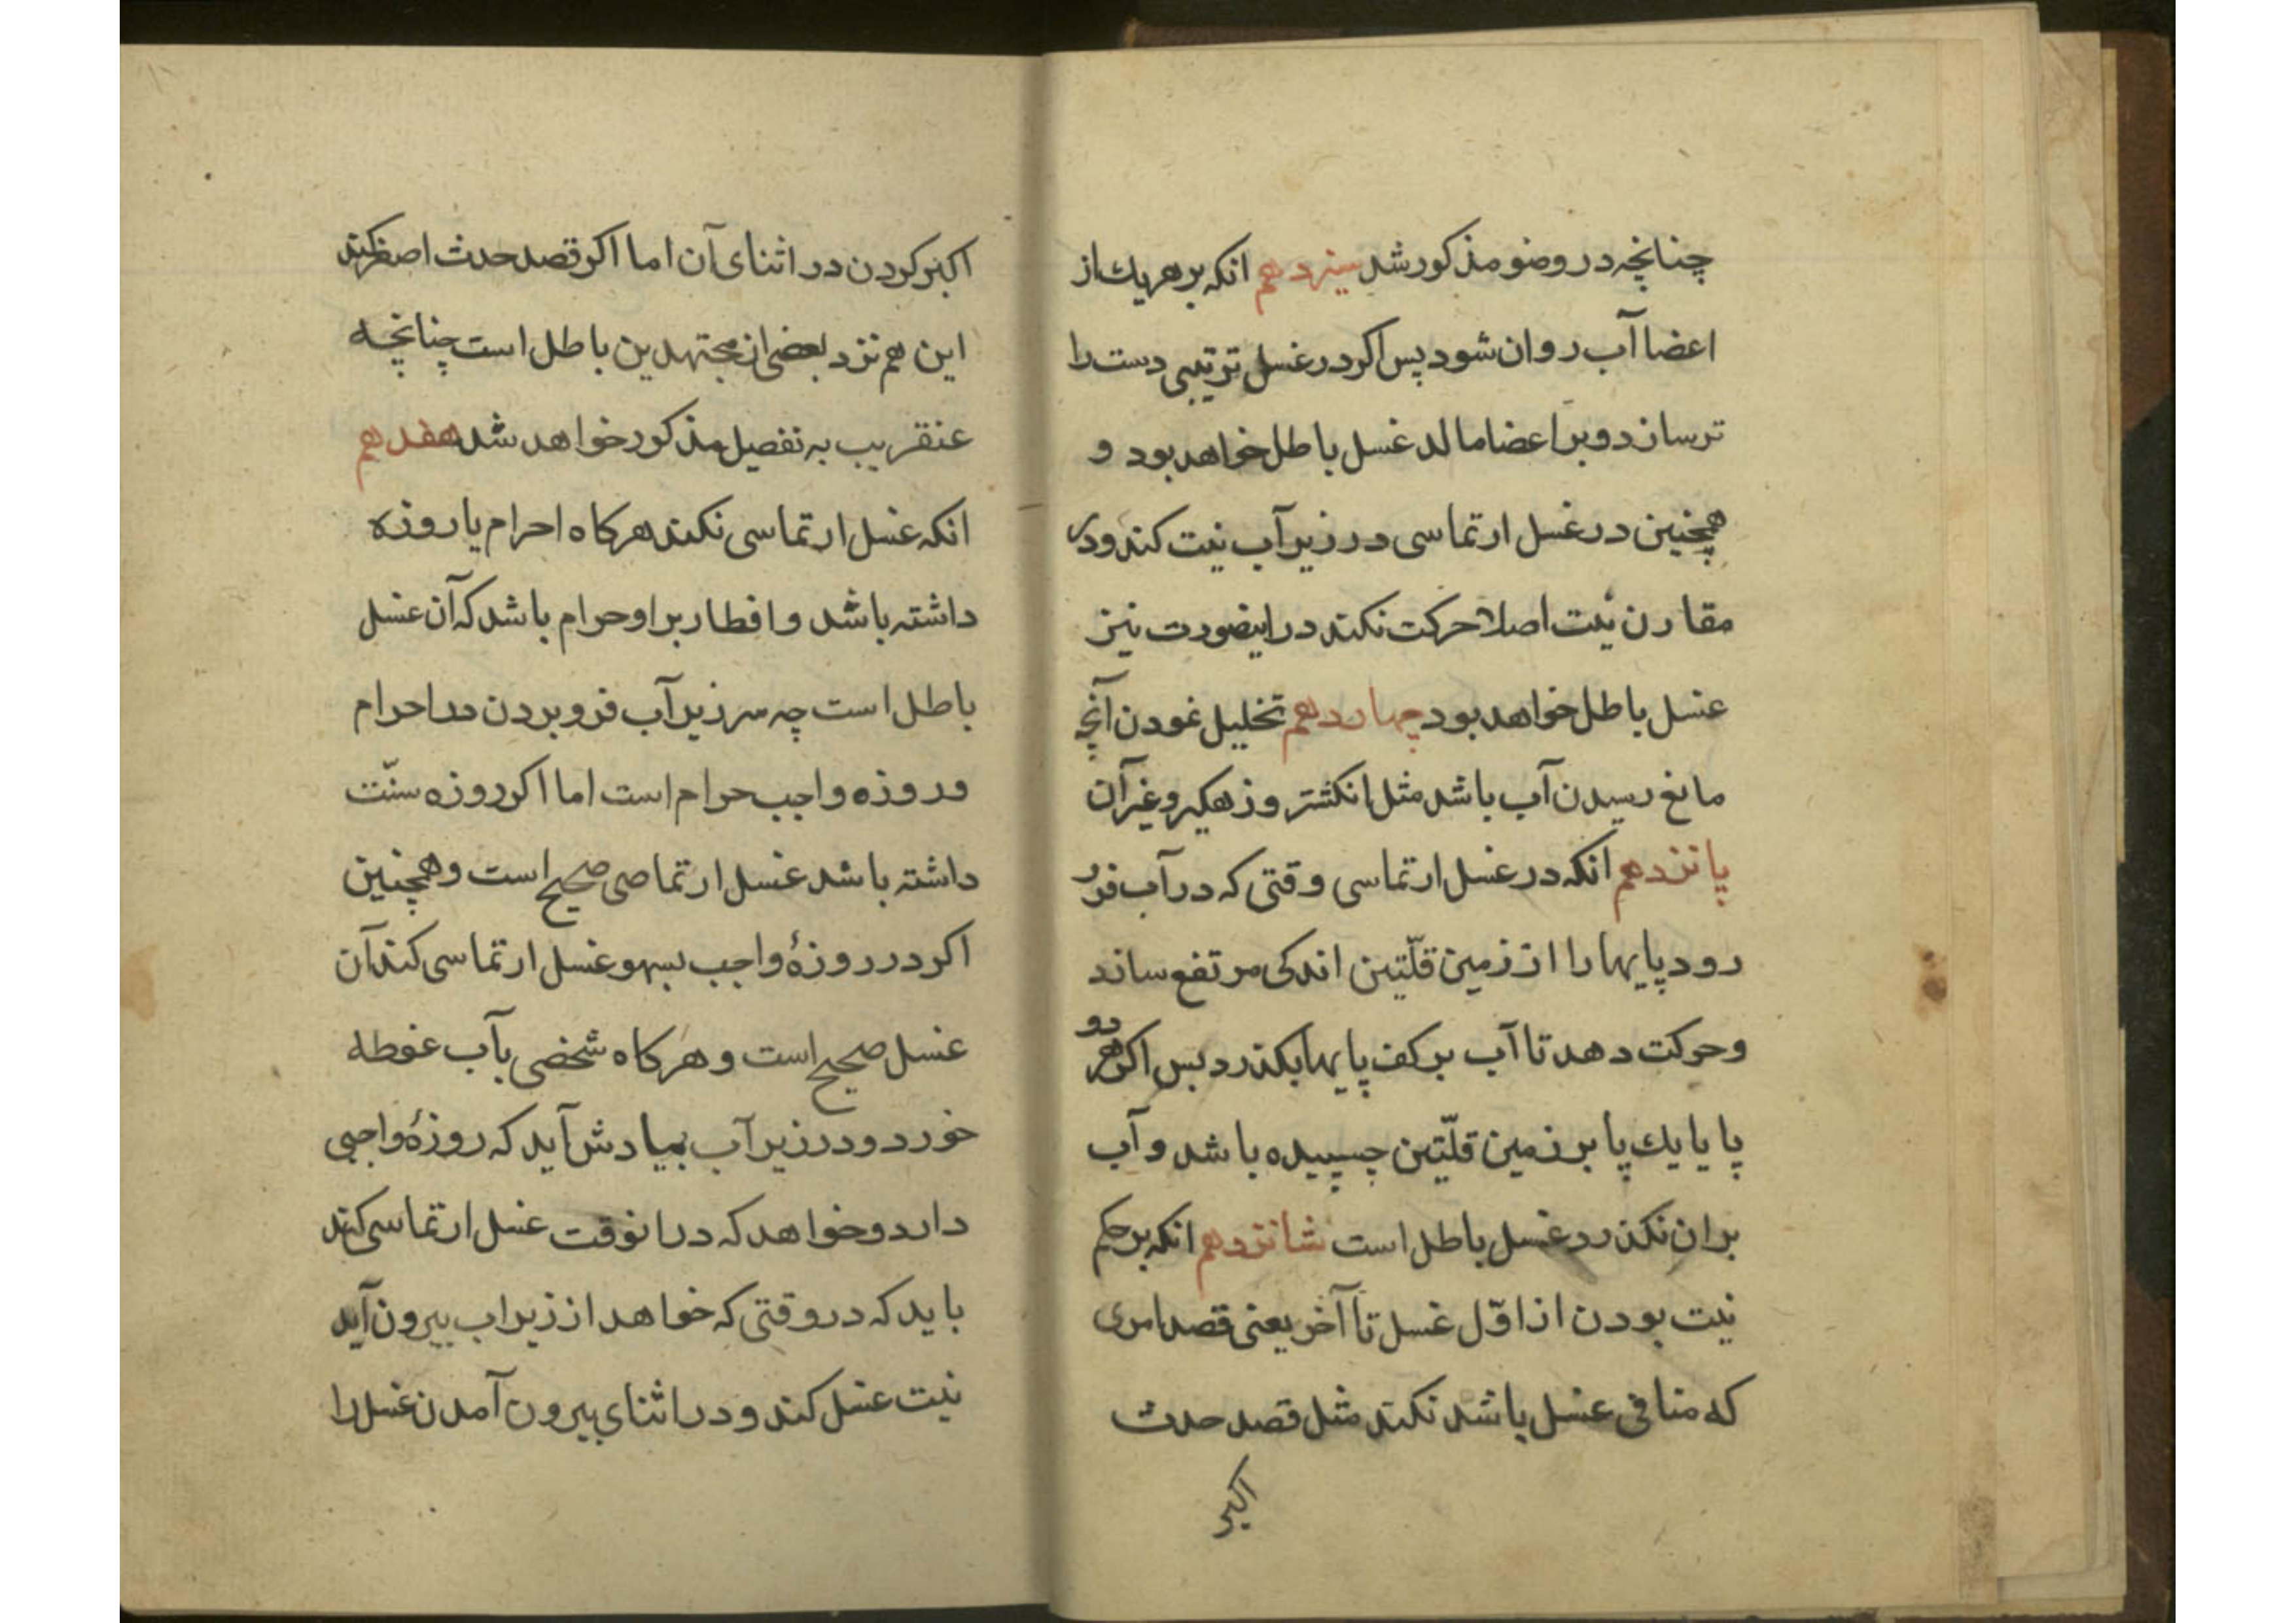 چنانچه در وضو مذکور شد سیزدهم انکه بر هریك از
اعضا آب روان شود پس اکر در غسل ترتیبی دست را
تر سازد و بر اعضا مالد غسل باطل خواهد بود و
همچنین در غسل ارتماسی در زیر آب نیت کند و در
مقارن نیت اصلا حرکت نکند در اینصورت نیز
غسل باطل خواهد بود چهاردهم تخلیل نمودن آنچه
مانع رسیدن آب باشد مثل انکشتر و زهکیر و غیر آن
پانزدهم انکه در غسل ارتماسی وقتی که در آب فرو
رود پایها را از زمین قلّتین اندکی مرتفع سازد
و حرکت دهد تا آب بر کف پایها بکذرد پس اکر هر دو
پا یا یك پا بر زمین قلّتین چسپیده باشد و آب
بران نکذرد غسل باطل است شانزدهم انکه بر حکم
نیت بودن از اوّل غسل تا آخر یعنی قصد امری
که منافی غسل باشد نکند مثل قصد حدث
اکبر
اکبر کردن در اثنای آن اما اکر قصد حدث اصغر کند
این هم نزد بعضی از مجتهدین باطل است چنانچه
عنقریب به تفصیل مذکور خواهد شد هفدهم
انکه غسل ارتماسی نکند هرکاه احرام یا روزه
داشته باشد و افطار بر او حرام باشد که آن غسل
باطل است چه سر زیر آب فرو بردن در احرام
و روزه واجب حرام است اما اکر روزه سنّت
داشته باشد غسل ارتماصی صحیح است و همچنین
اکر در روزۀ واجب بسهو غسل ارتماسی کند آن
غسل صحیح است و هرکاه شخصی بآب غوطه
خورد و در زیر آب بیادش آید که روزۀ واجبی
دارد و خواهد که در انوقت غسل ارتماسی کند
باید که در وقتی که خواهد از زیر اب بیرون آید
نیت غسل کند و در اثنای بیرون آمدن غسل را